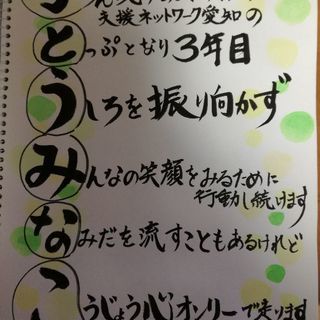 支援ネットワーク愛知の
とっぷとなり3年目
うしろを振り向かず
みんなの笑顔をみるために
行動し続けます
なみだを流すこともあるけれど
こうじょう心オンリーで走ります